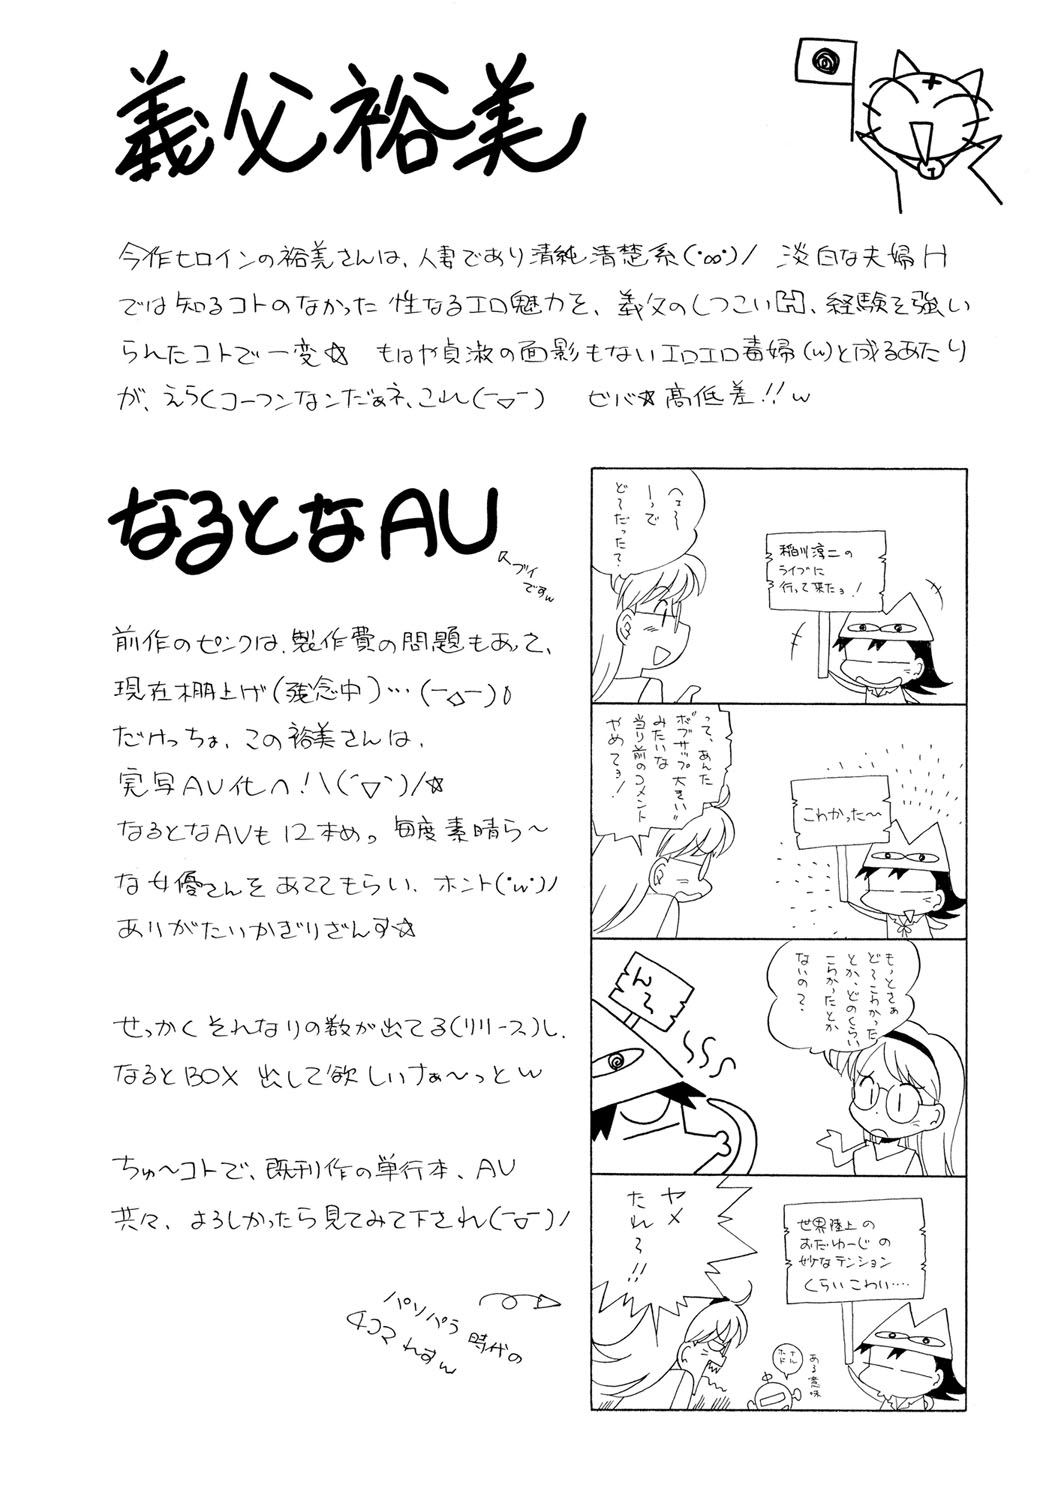 義父裕美
今作ヒロインの裕美さんは、人妻であり清純清楚系(・∞・)/ 淡白な夫婦H
では知るコトのなかった 性なるエロ魅力を、義父のしつこいH、経験を強い
られたコトで一変☆ もはや貞淑の面影もないエロエロ毒婦(w)と成るあたり
が、えらくコーフンなンだぁネ、これ(ー▽ー) ビバ☆高低差!!w
なるとなAV
スブイ
ですw
前作のピンクは、製作費の問題もあって、
現在棚上げ(残念中)…(ー△ー)0
だけっちょ、この裕美さんは、
実写AV化へ!\(▽)/☆
なるとなAVも12本めっ 毎度素晴ら〜
な女優さんをあててもらい、ホント('w')/
ありがたいかぎりざんす☆
せっかくそれなりの数が出てる(リリース)し、
なるとBOX 出して欲しいけぁ〜っとw
ちゅ〜コトで、既刊作の単行本、AV
共々、よろしかったら見てみて下され(ー▽ー)/
パソパラ時代の
4コマれすw
へェ〜
ーっで
ど〜だった?
稲川淳二の
ライブに
行って来たョ!
って、あんた
ボブサップ大きい"
みたいな
当り前のコメント
やめてョ!
こわかった〜
もっとさぁ
ど〜こわかった
とか、どのくらい
こわかったとか
ないの?
ん〜
ヤメ
たれ〜!!
世界陸上の
おだゆーじの
妙なテンション
くらいこわい‥‥
ナル
ホド
ある意味